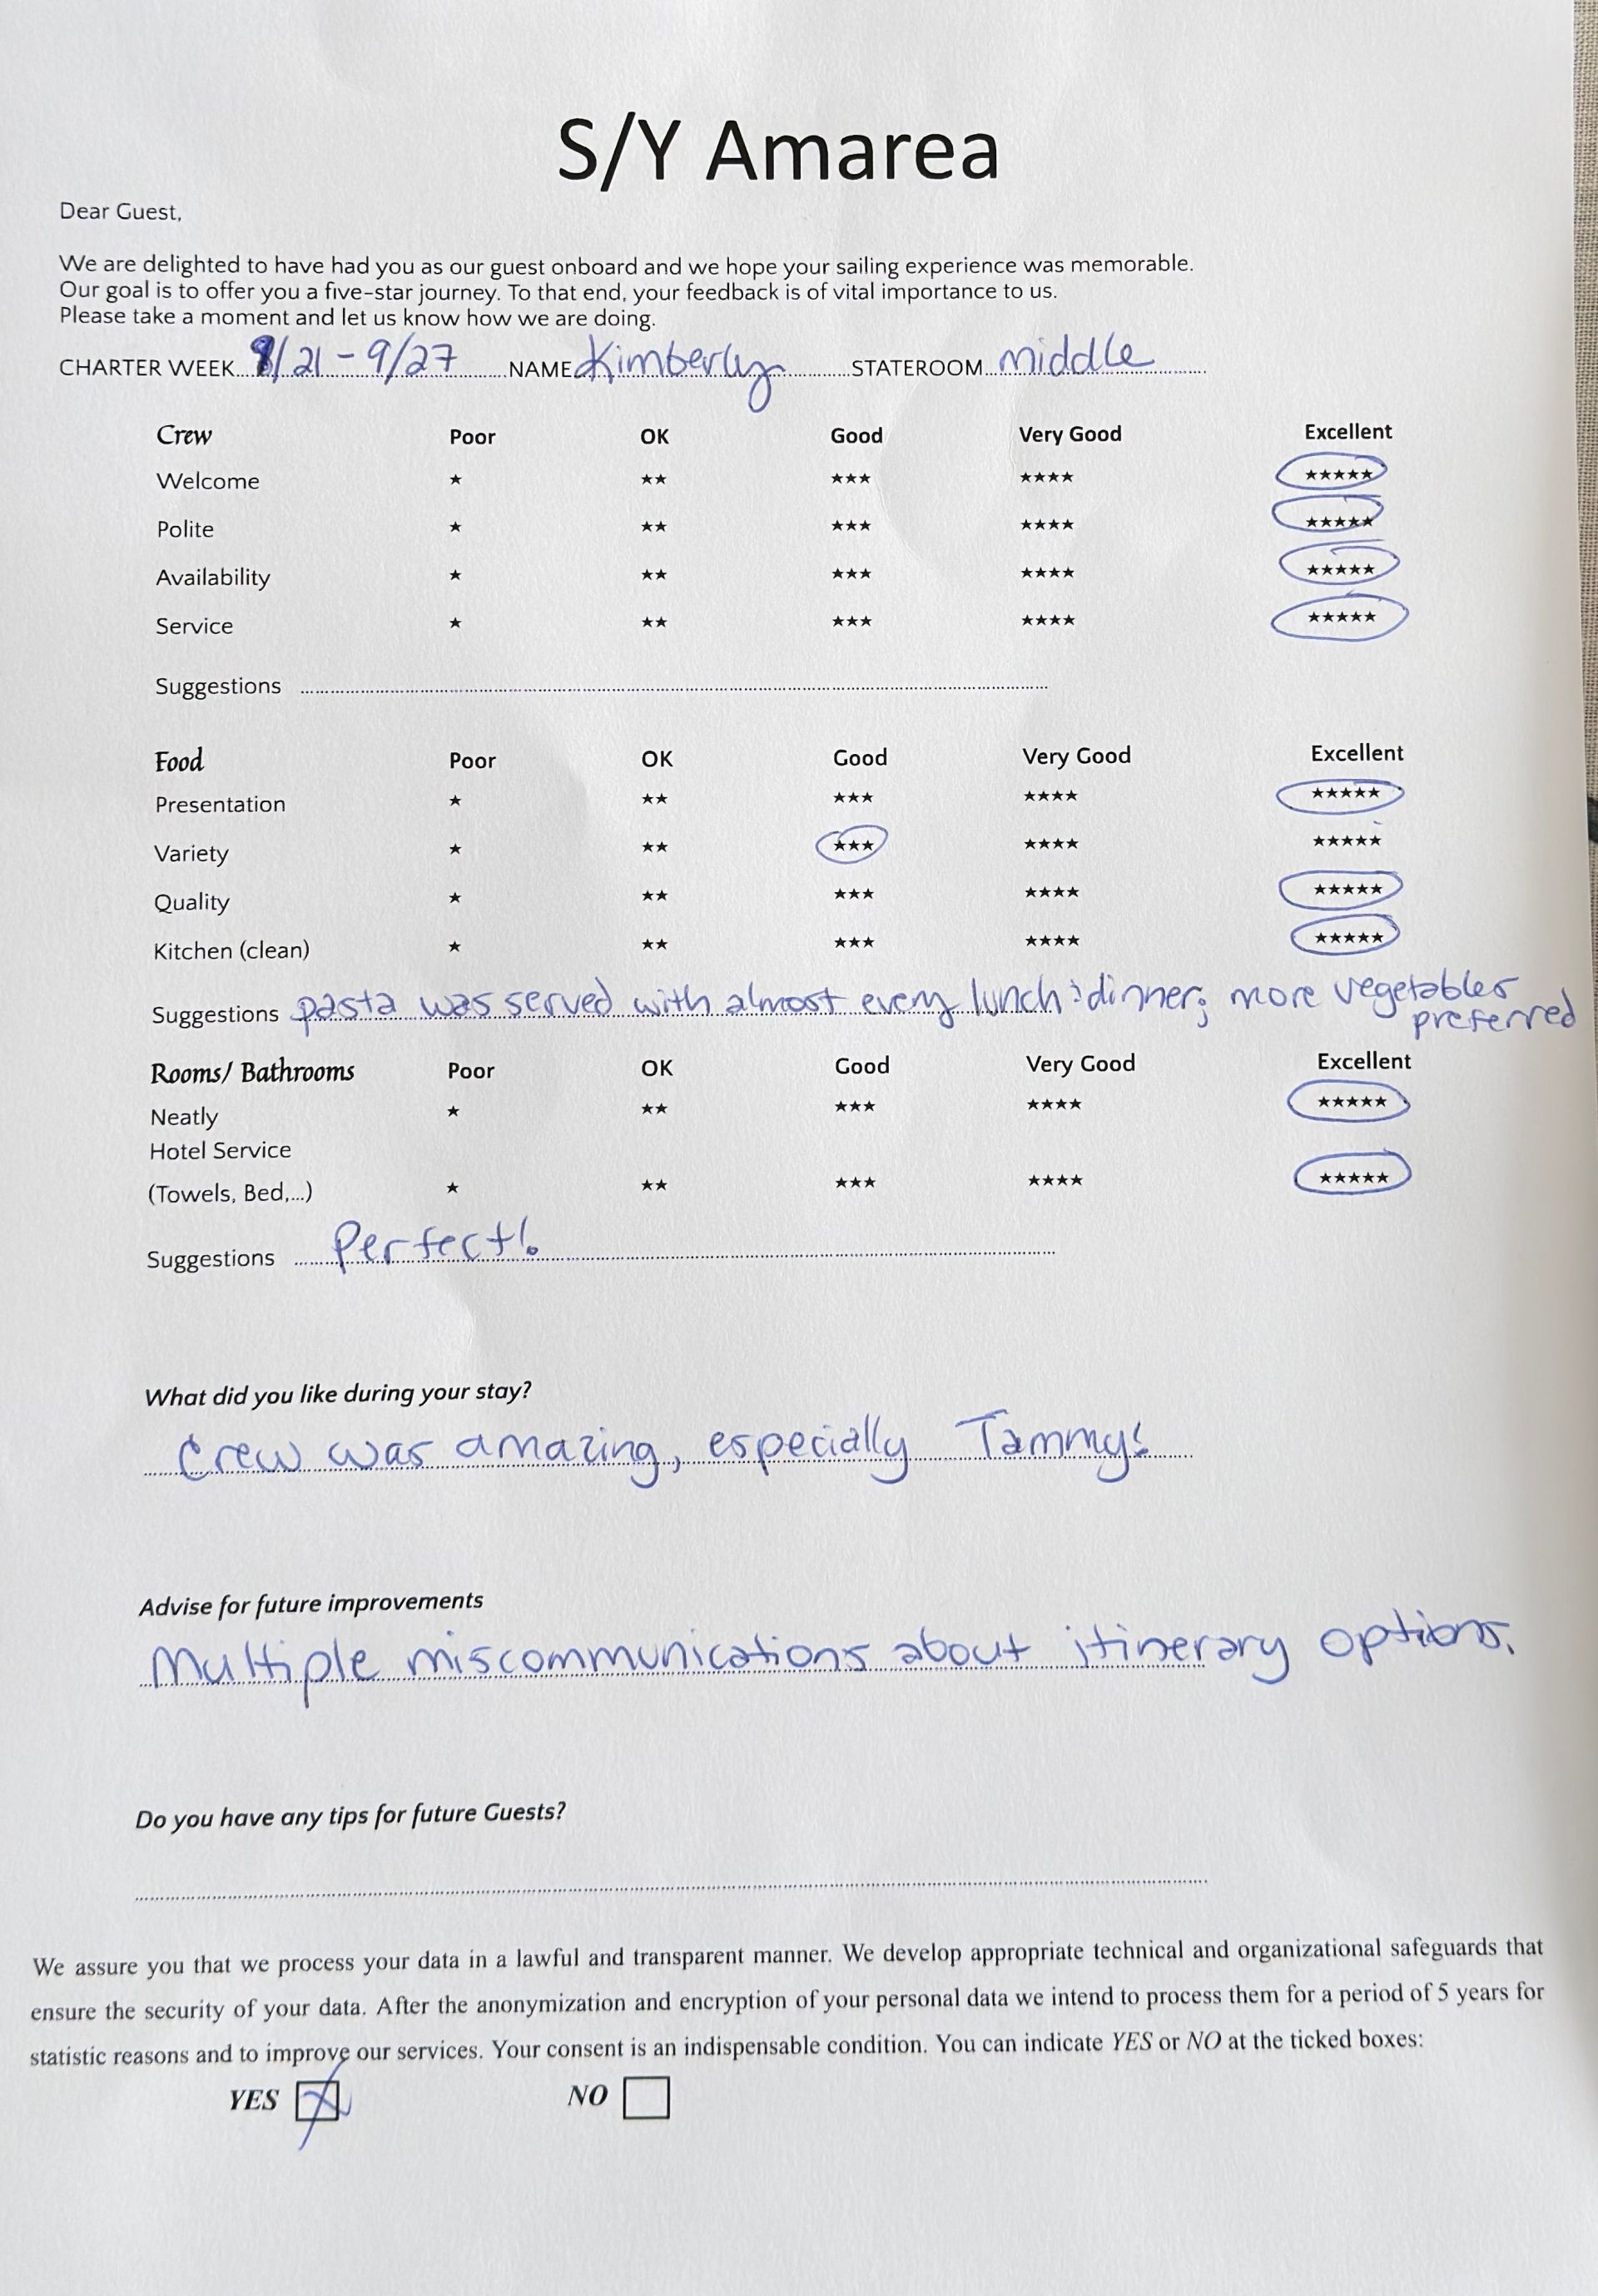 S/Y Amarea
Dear Guest,
We are delighted to have had you as our guest onboard and we hope your sailing experience was memorable.
Our goal is to offer you a five-star journey. To that end, your feedback is of vital importance to us.
Please take a moment and let us know how we are doing.
CHARTER WEEK 9/21 - 9/27 NAME Kimberly STATEROOM middle
Crew Poor OK Good Very Good Excellent
Welcome ★ ★★ ★★★ ★★★★ ★★★★★
Polite ★ ★★ ★★★ ★★★★ ★★★★★
Availability ★ ★★ ★★★ ★★★★ ★★★★★
Service ★ ★★ ★★★ ★★★★ ★★★★★
Suggestions
Food Poor OK Good Very Good Excellent
Presentation ★ ★★ ★★★ ★★★★ ★★★★★
Variety ★ ★★ ★★★ ★★★★ ★★★★★
Quality ★ ★★ ★★★ ★★★★ ★★★★★
Kitchen (clean) ★ ★★ ★★★ ★★★★ ★★★★★
Suggestions pasta was served with almost every lunch & dinner; more vegetables
preferred
Rooms/ Bathrooms Poor OK Good Very Good Excellent
Neatly ★ ★★ ★★★ ★★★★ ★★★★★
Hotel Service
(Towels, Bed,...) ★ ★★ ★★★ ★★★★ ★★★★★
Suggestions Perfect!
What did you like during your stay?
Crew was amazing, especially Tammy!
Advise for future improvements
Multiple miscommunications about itinerary options.
Do you have any tips for future Guests?
We assure you that we process your data in a lawful and transparent manner. We develop appropriate technical and organizational safeguards that
ensure the security of your data. After the anonymization and encryption of your personal data we intend to process them for a period of 5 years for
statistic reasons and to improve our services. Your consent is an indispensable condition. You can indicate YES or NO at the ticked boxes:
YES NO